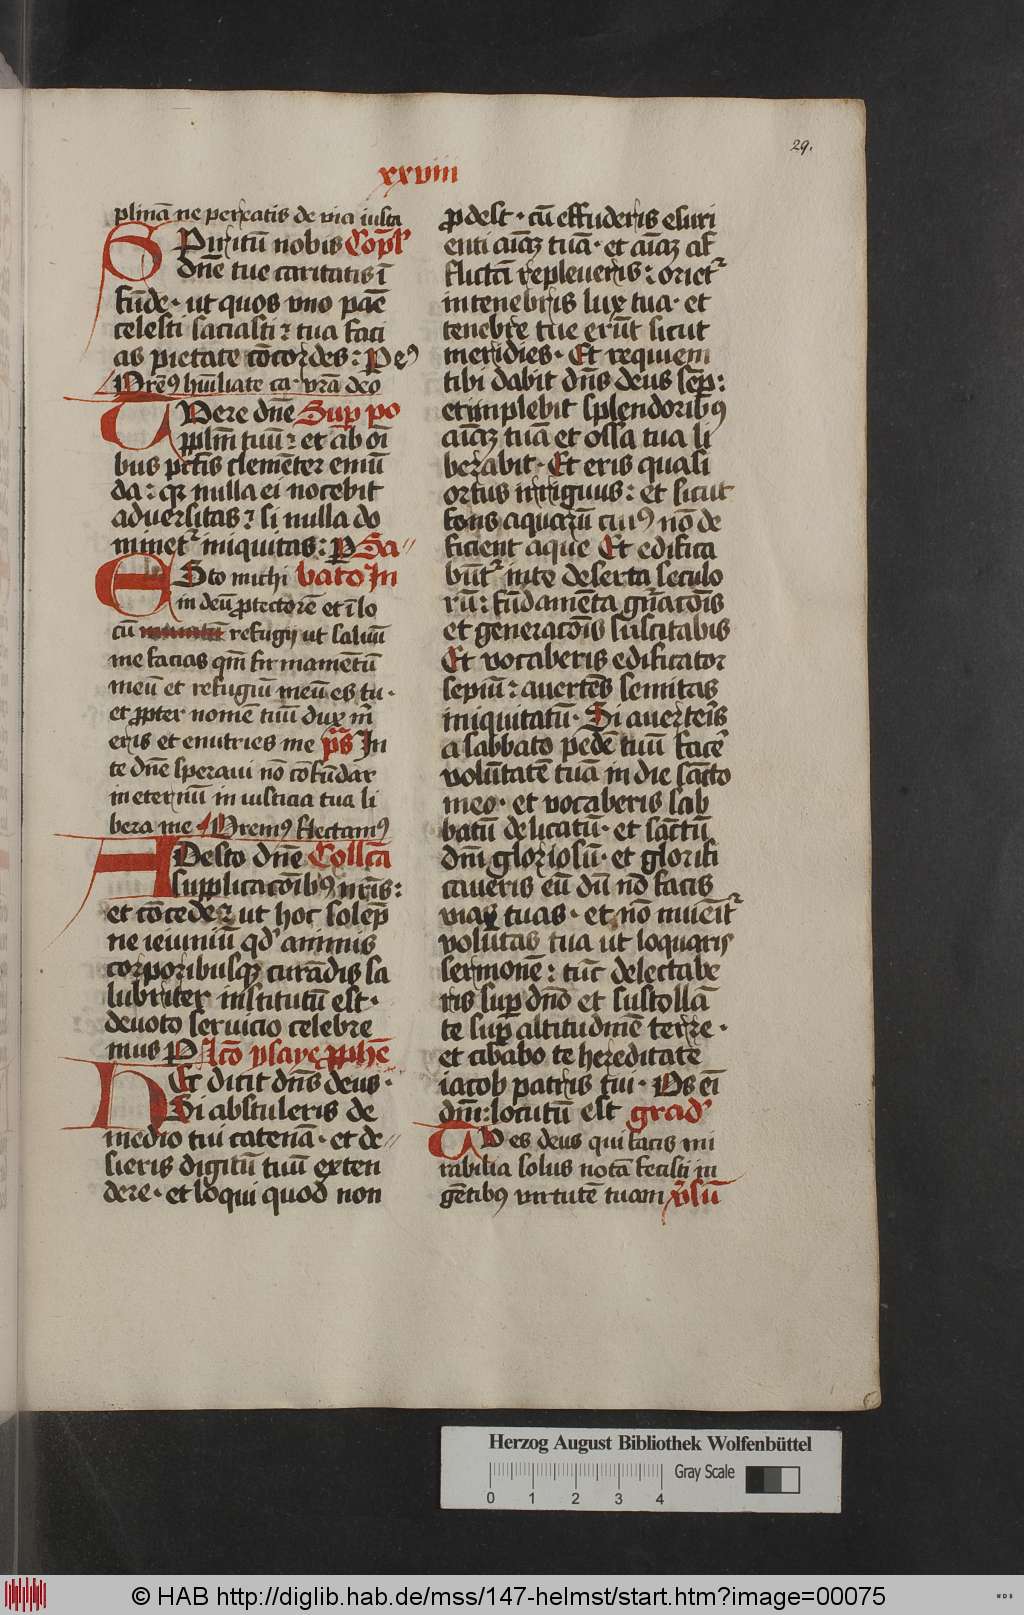 29.
xxviii
plinā ne pereatis de via iusta
Spiritū nobis Cōpl'
dn̄e tue caritatis ī
fūde· ut quos vno pāe
celesti saciasti: tua faci
as pietate cōcordes: Pe9
Orem9 hūiliate ca· vr̄a deo
Tuere dn̄e Sup po
pplm̄ tuū: et ab oī
bus pctīs clemēter emū
da: qz nulla ei nocebit
aduersitas: si nulla do
minet' iniquitas: P Sa-
Esto michi bato In
in deū ptectorē et ī lo
cū refugij ut saluū
me facias qm̄ firmamētū
meū et refugiū meū es tu·
et ppter nomē tuū dux m̄
eris et enutries me p̄s In
te dn̄e speraui nō cōfūdar
in eternū in iusticia tua li
bera me Orem9 flectam9
Adesto dn̄e Collcā
supplicacōib9 nr̄is:
et cōcede: ut hoc solēp
ne ieiuniū qd' animis
corporibusqz curādis sa
lubriter institutū est·
deuoto seruicio celebre
mus P Lcō ysaye pphē
Hec dicit dn̄s deus·
Si abstuleris de
medio tui catenā· et de-
sieris digitū tuū exten
dere· et loqui quod non
pdest· cū effuderis esuri
enti aīaz tuā· et aīaz af
flictā repleueris: oriet'
in tenebris lux tua· et
tenebre tue erūt sicut
meridies· Et requiem
tibi dabit dn̄s deus sēp:
et implebit splendorib9
aīaz tuā et ossa tua li
berabit· Et eris quasi
ortus irriguus: et sicut
fons aquarū cui9 nō de
ficient aque Et edifica
būt' in te deserta seculo
rū: fūdamēta gn̄acōis
et generacōis suscitabis
Et vocaberis edificator
sepiū: auertēs semitas
iniquitatū· Si auerteīs
a sabbato pedē tuū facē'
voluntatē tuā in die sācto
meo· et vocaberis sab
batū delicatū· et sāctū
dnī gloriosū· et glorifi
caueris eū dū nō facis
vias tuas· et nō īuēit'
voluntas tua ut loquaris
sermonē: tūc delectabe
ris sup dn̄o et sustollā
te sup altitudinē terre·
et cibabo te hereditate
iacob patris tui· Os eī
dnī: locutū est grad'
Tu es deus qui facis mi
rabilia solus notā fecisti in
gētib9 virtutē tuam v̄sū
Herzog August Bibliothek Wolfenbüttel
Gray Scale
0 1 2 3 4
© HAB http://diglib.hab.de/mss/147-helmst/start.htm?image=00075